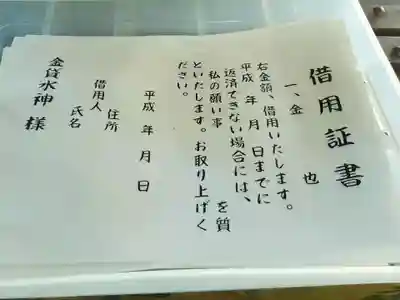 借用証書
一、金　　　　也
右金額、借用いたします。
平成　年　月　日までに
返済できない場合には、
私の願い事　　　　を質
といたします。お取り上げく
ださい。
平成　年　月　日
住所
借用人
氏名
金貸水神様